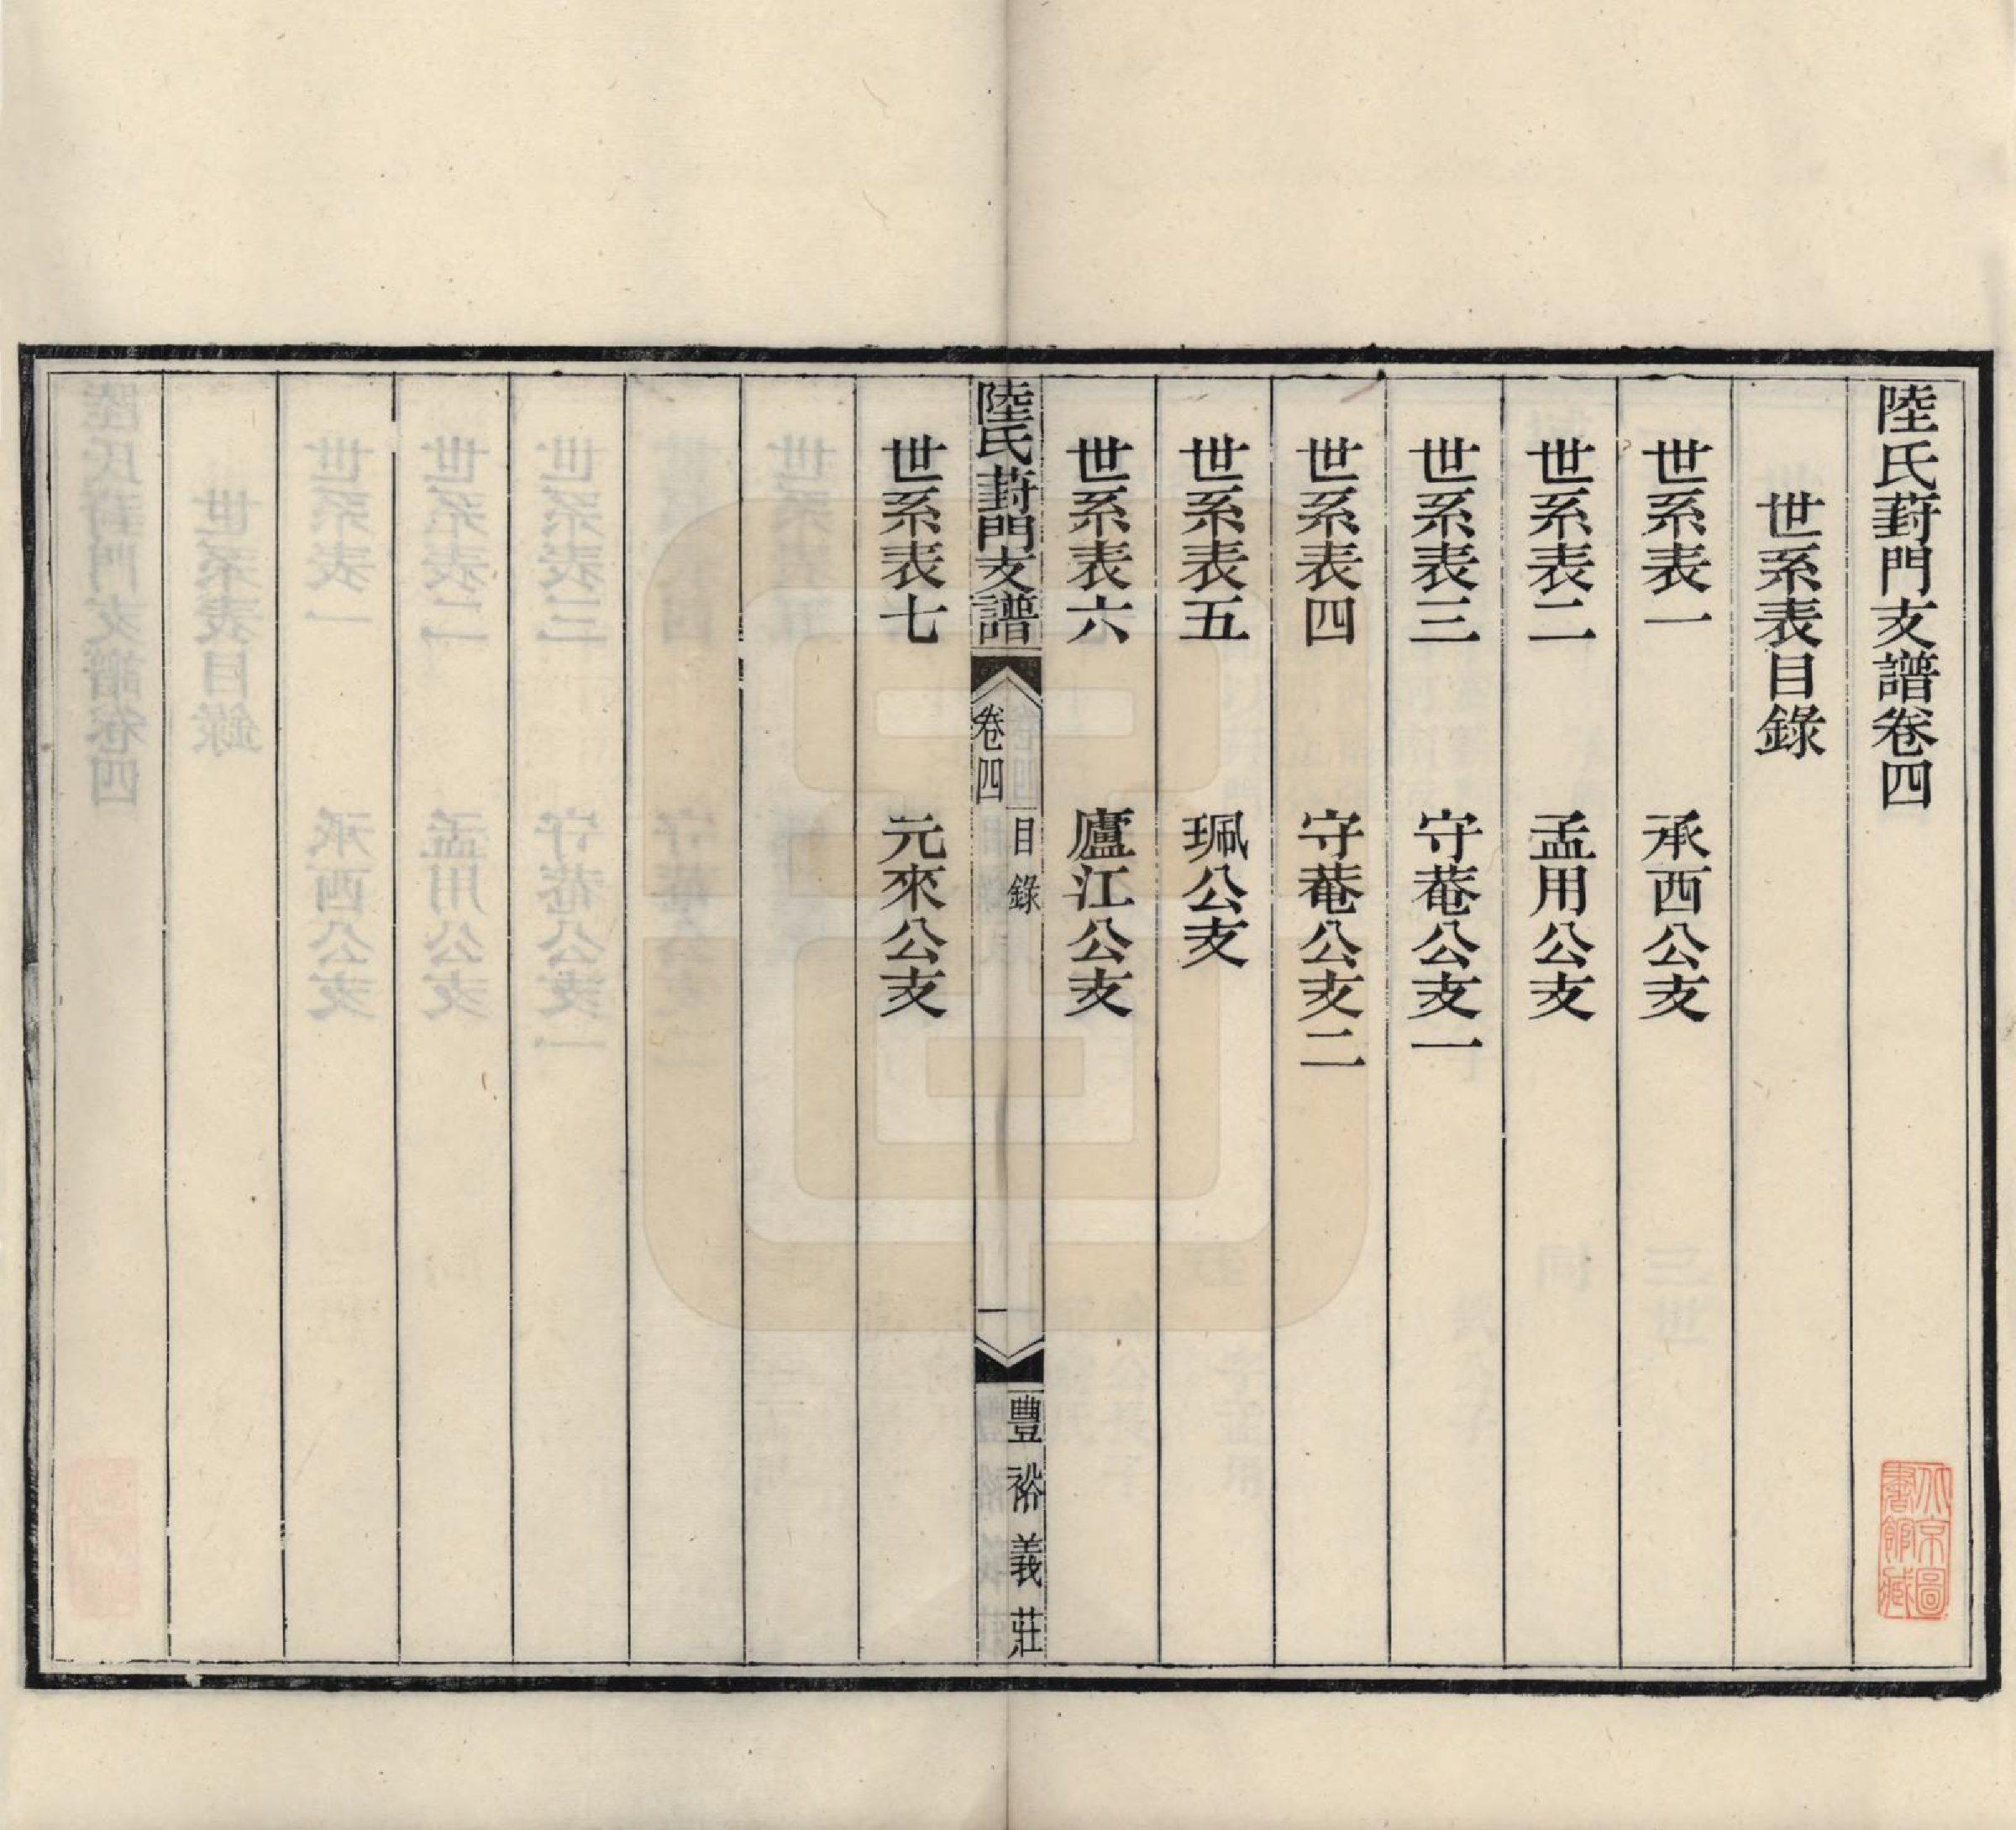 陸氏葑門支譜卷四
世系表目錄
世系表一 承西公支
世系表二 孟用公支
世系表三 守菴公支一
世系表四 守菴公支二
世系表五 珮公支
世系表六 廬江公支
陸氏葑門支譜 卷四 目錄 一 豐裕義莊
世系表七 元來公支
北京圖
書館藏